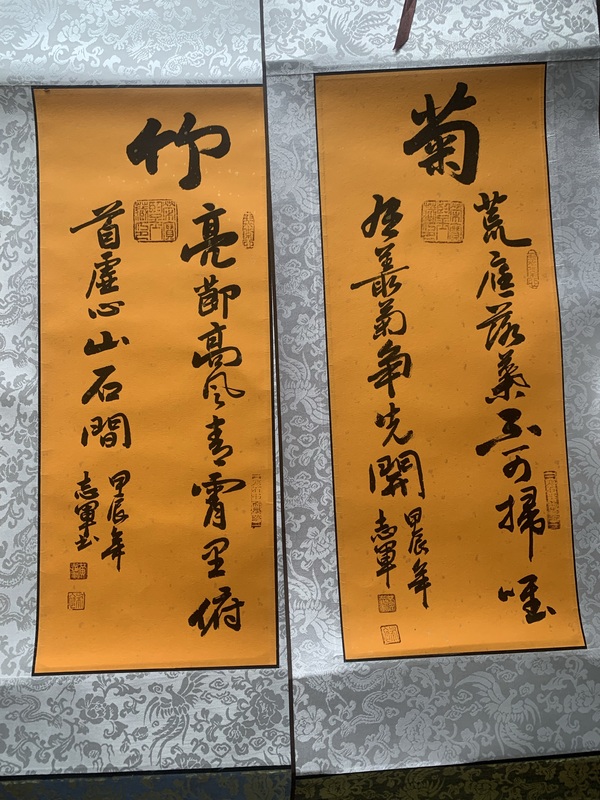 菊
荒庭落葉不可掃唯
有叢菊争先開
甲辰年
志軍
竹
亮節高風青霄里俯
首虛心山石間
甲辰年
志軍书